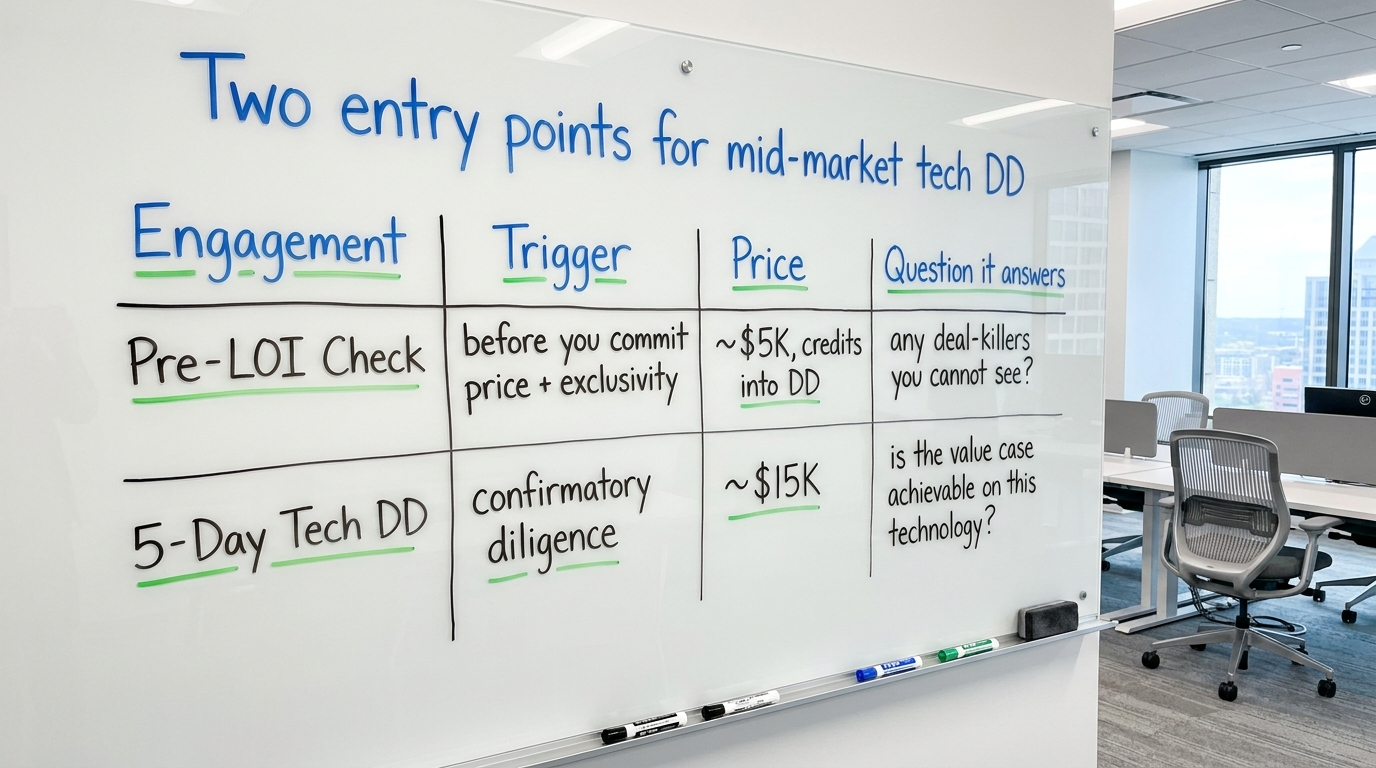 Two entry points for mid-market tech DD
Engagement
Trigger
Price
Question it answers
Pre-LOI Check
before you commit
price + exclusivity
~$5K, credits
into DD
any deal-killers
you cannot see?
5-Day Tech DD
confirmatory
diligence
~$15K
is the value case
achievable on this
technology?